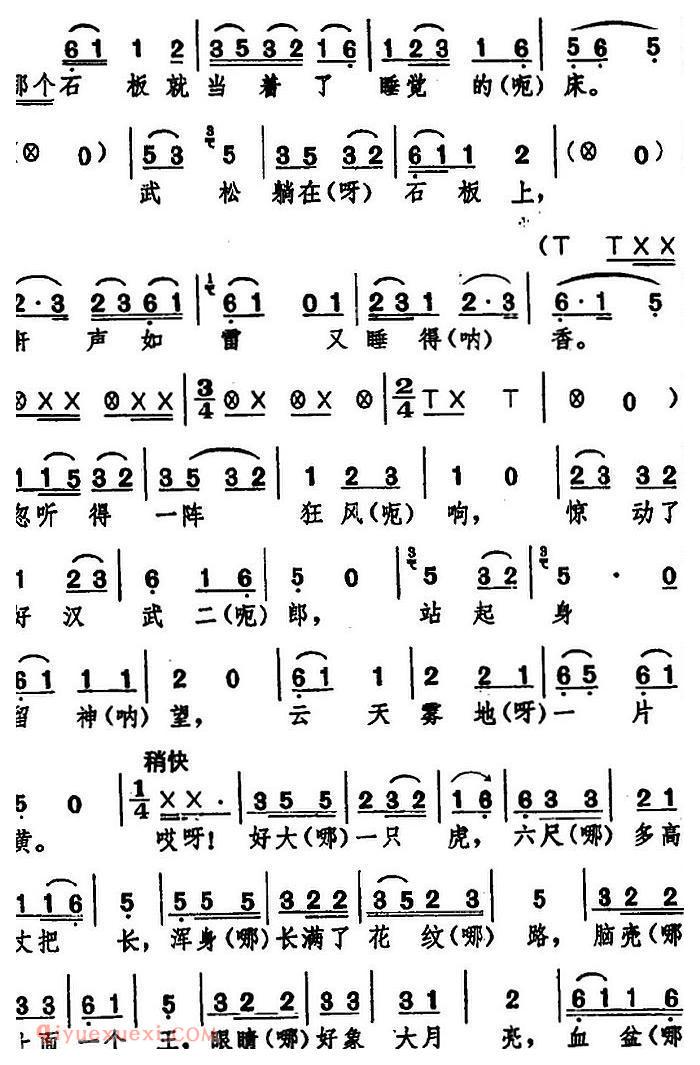 6 1 1 2 | 3 5 3 2 1 6 | 1 2 3 1 6 | 5 6 5
个石 板就当着了 睡觉的(呃)床。
(⊗ 0) | 5 3 5 | 3 5 3 2 | 6 1 1 2 | (⊗ 0) |
武松躺在(呀)石板上,
(T T X X
2 · 3 2 3 6 1 | 6 1 0 1 | 2 3 1 2 · 3 | 6 · 1 5
声如雷 又睡得(呐)香。
⊗ X X ⊗ X X | 3/4 ⊗ X ⊗ X ⊗ | 2/4 T X T | ⊗ 0 )
1 1 5 3 2 | 3 5 3 2 | 1 2 3 | 1 0 | 2 3 3 2
忽听得一阵 狂风(呃)响, 惊动了
1 2 3 | 6 1 6 | 5 0 | 5 3 2 | 5 · 0
好汉武二(呃)郎, 站起身
6 1 1 1 | 2 0 | 6 1 1 | 2 2 1 | 6 5 6 1
留神(呐)望, 云天雾地(呀)一片
稍快
5 0 | 1/4 X X · | 3 5 5 | 2 3 2 | 1 6 | 6 3 3 | 2 1
黄。 哎呀! 好大(哪)一只虎, 六尺(哪)多高
1 1 6 | 5 | 5 5 5 | 3 2 2 | 3 5 2 3 | 5 | 3 2 2
丈把长, 浑身(哪)长满了花纹(哪)路, 脑壳(哪
3 3 | 6 1 | 5 | 3 2 2 | 3 3 | 3 1 | 2 | 6 1 1
上面一个王, 眼睛(哪)好象大月亮, 血盆(哪
qiyuexuexi.com